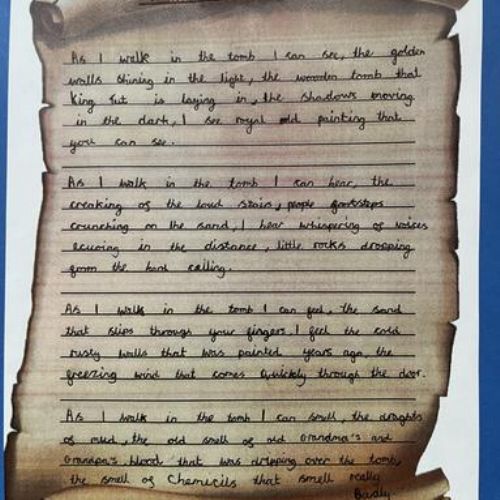 As I walk in the tomb I can see, the golden
walls shining in the light, the wooden tomb that
King Tut is laying in, the shadows moving
in the dark, I see royal old painting that
you can see.
As I walk in the tomb I can hear, the
creaking of the loud stairs, people footsteps
crunching on the sand, I hear whispering of voices
ecuoing in the distance, little rocks dropping
from the hank ceiling.
As I walk in the tomb I can feel, the sand
that slips through your fingers. I feel the cold
rusty walls that was painted years ago, the
freezing wind that comes quickely through the door.
As I walk in the tomb I can smell, the draghts
of mud, the old smell of old Grandma's and
Grandpa's blood that was dripping over the tomb,
the smell of chemicils that smell really
Badly